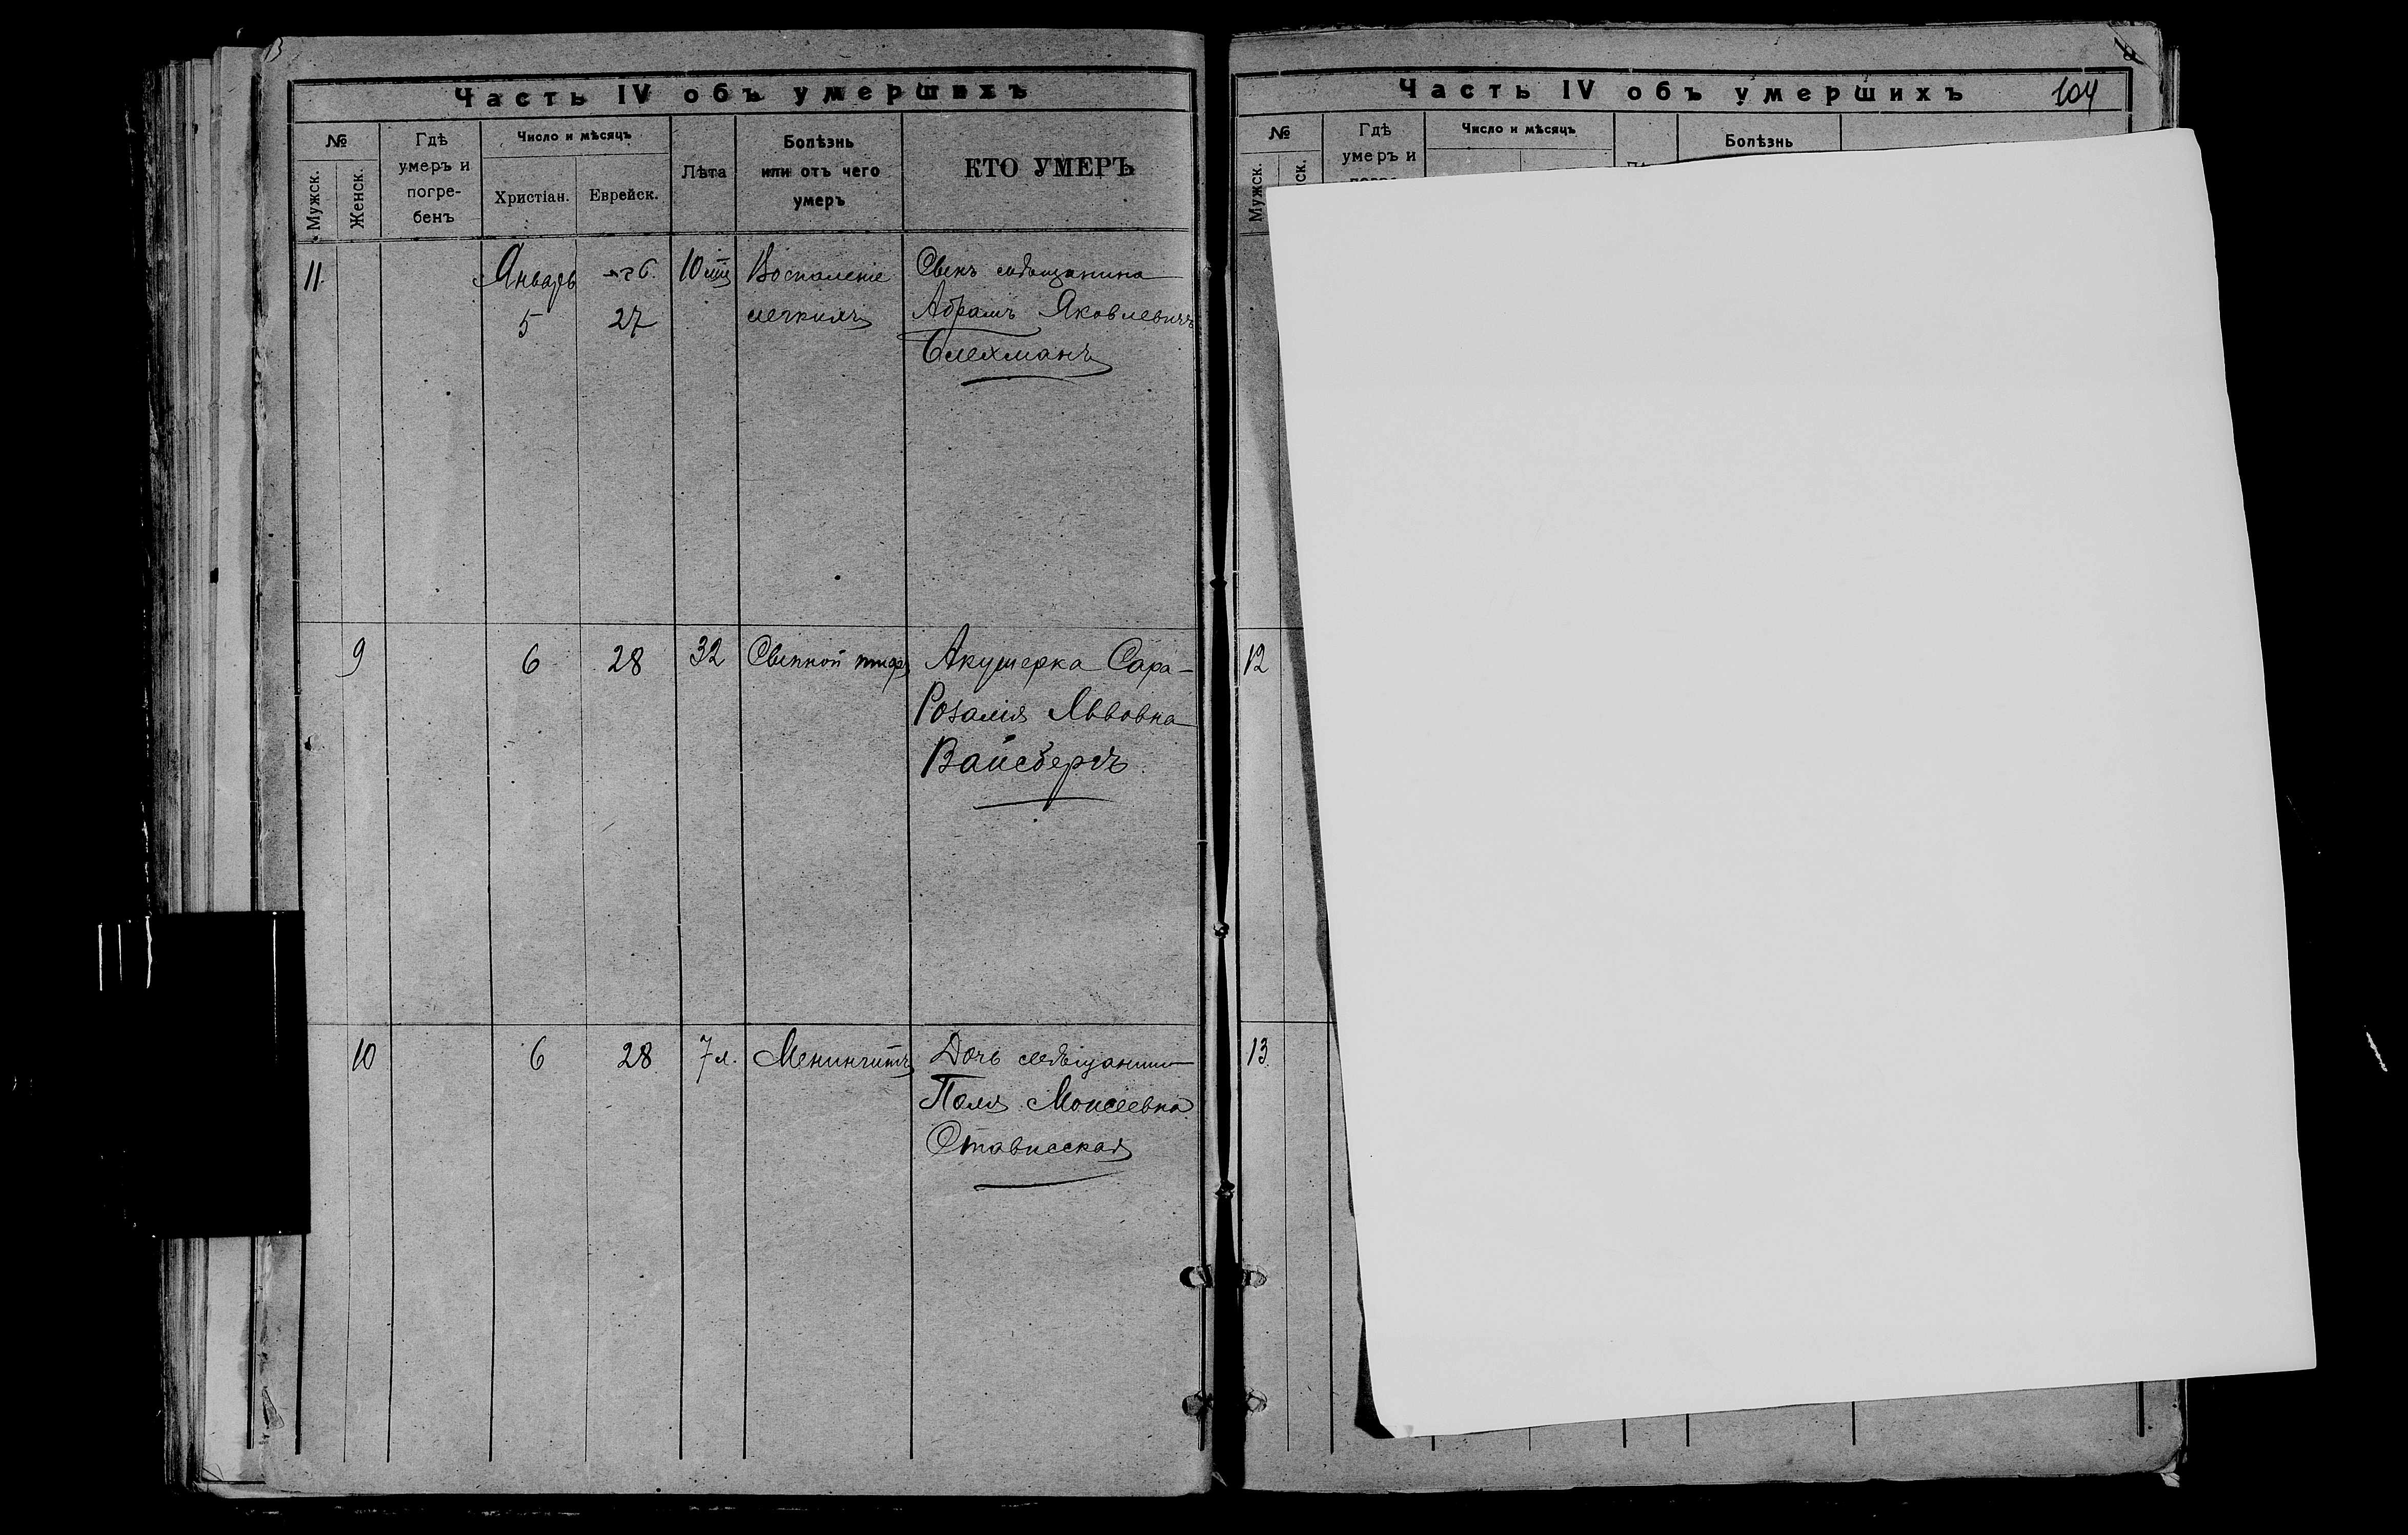 Часть IV объ умершихъ
№
Мужск.
Женск.
Гдѣ
умеръ и
погре-
бенъ
Число и мѣсяцъ
Христіан.
Еврейск.
Лѣта
Болѣзнь
или отъ чего
умеръ
КТО УМЕРЪ
11
Январь
5
27
10
Воспаленіе
легкихъ
Сынъ мѣщанина
Абрамъ Яковлевичъ
Блехманъ
9
6
28
32
Сыпной тифъ
Акушерка Сара-
Розалія Львовна
Вайсбергъ
10
6
28
7 л.
Менингитъ
Дочь мѣщанина
Поля Моисеевна
Стависская
Часть IV объ умершихъ
104
№
Мужск.
ск.
Гдѣ
умеръ и
Число и мѣсяцъ
Болѣзнь
12
13